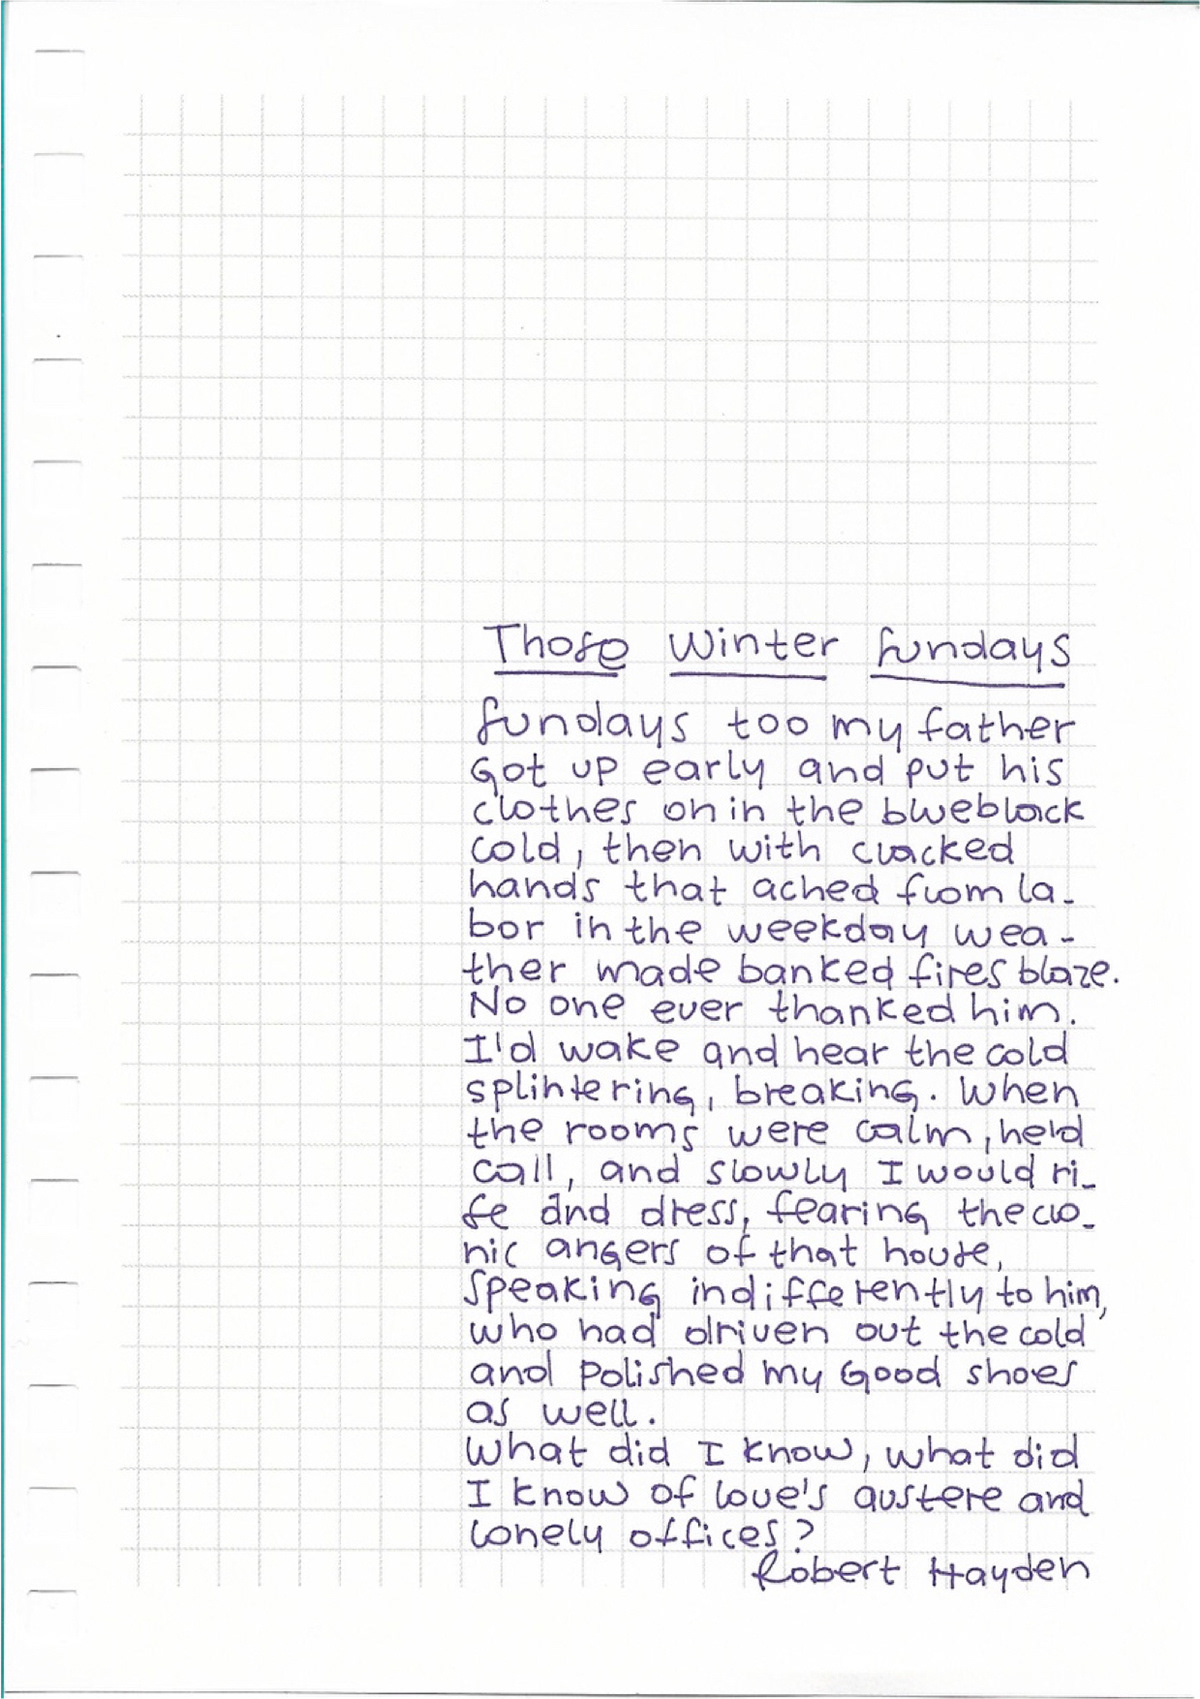 Those Winter Sundays
Sundays too my father
Got up early and put his
clothes on in the blueblack
cold, then with cracked
hands that ached from la-
bor in the weekday wea-
ther made banked fires blaze.
No one ever thanked him.
I'd wake and hear the cold
splintering, breaking. When
the rooms were calm, he'd
call, and slowly I would ri-
se and dress, fearing the cro-
nic angers of that house,
Speaking indifferently to him,
who had driven out the cold
and polished my Good shoes
as well.
What did I know, what did
I know of love's austere and
lonely offices?
Robert Hayden